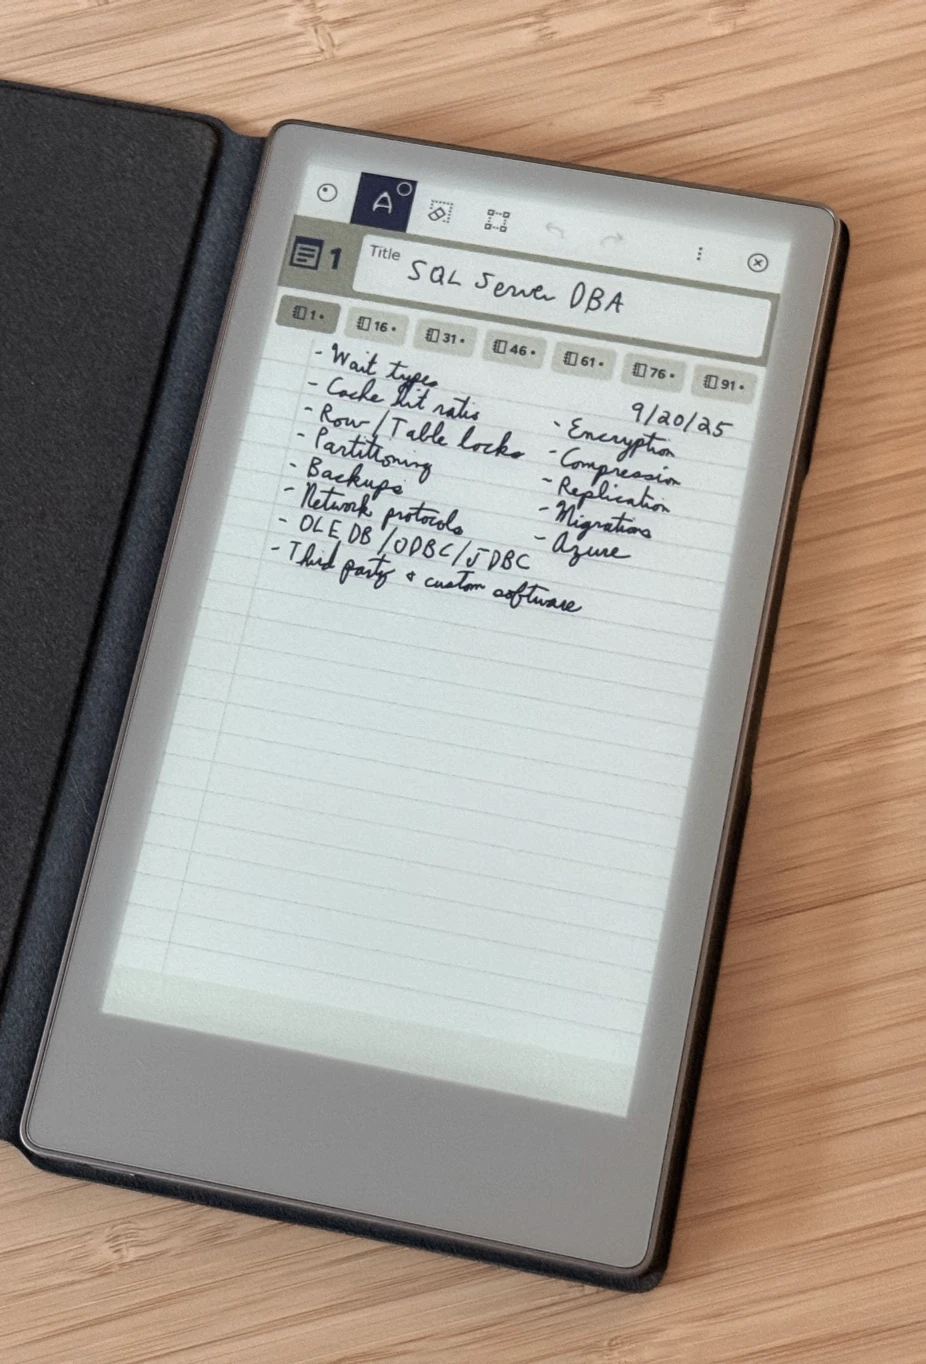 A
1
Title
SQL Server DBA
1•
16•
31•
46•
61•
76•
91•
9/20/25
- Wait types
- Cache hit ratio
- Row/Table locks
- Partitioning
- Backups
- Network protocols
- OLE DB/ODBC/JDBC
- Third party & custom software
- Encryption
- Compression
- Replication
- Migrations
- Azure